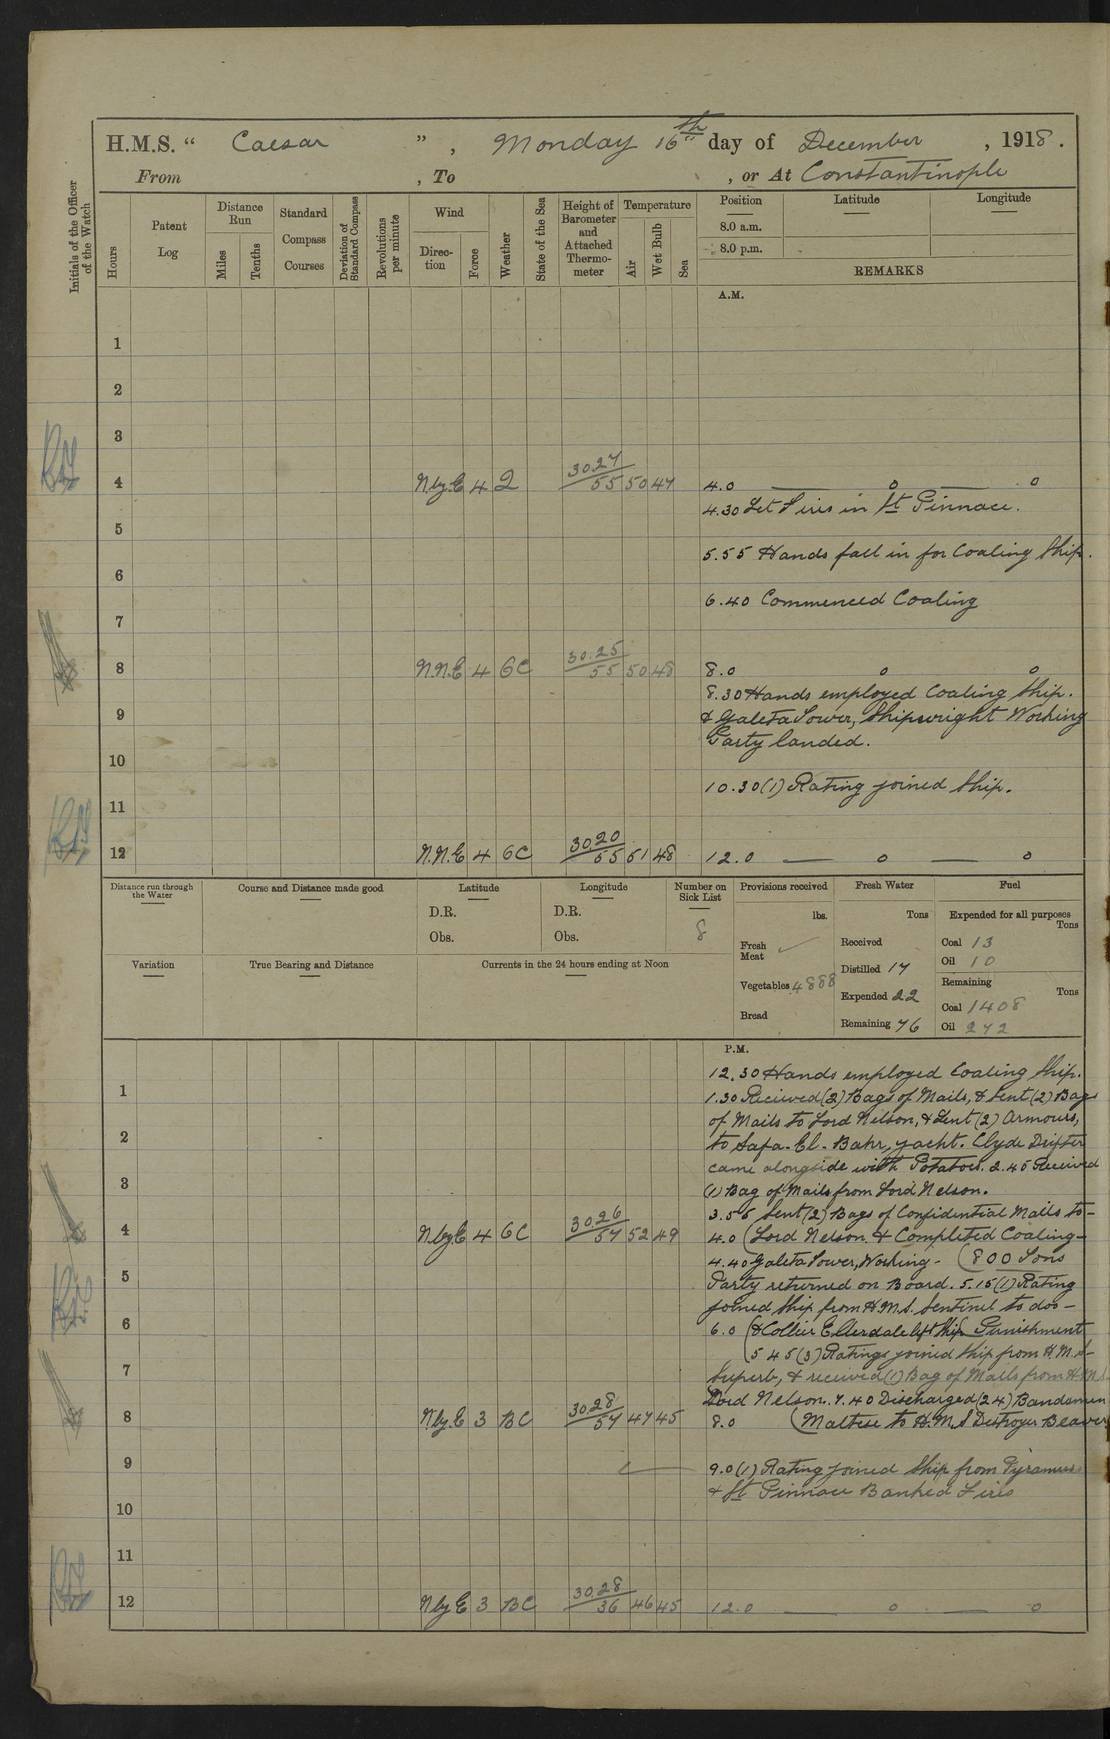 H.M.S. “ Caesar ” , Monday 16th day of December , 1918 .
From , To , or At Constantinople
Initials of the Officer of the Watch
Hours
Patent Log
Distance Run
Miles
Tenths
Standard Compass Courses
Deviation of Standard Compass
Revolutions per minute
Wind
Direction
Force
Weather
State of the Sea
Height of Barometer and Attached Thermometer
Temperature
Air
Wet Bulb
Sea
Position Latitude Longitude
8.0 a.m.
8.0 p.m.
REMARKS
A.M.
1
2
3
4 N by E 4 30.27 55 50 47 4.0 — o — o
4.30 Let Fires in St Pinnace.
5
5.55 Hands fall in for Coaling Ship.
6
6.40 Commenced Coaling
7
8 N.N.E 4 GC 30.25 55 50 48 8.0 o o
8.30 Hands employed Coaling Ship.
9 & Galeta Tower, Shipwright Working
Party landed.
10
10.30 (1) Rating joined Ship.
11
12 N.N.E 4 GC 30.20 55 51 48 12.0 — o — o
Distance run through the Water
Course and Distance made good
Latitude
D.R.
Obs.
Longitude
D.R.
Obs.
Number on Sick List
8
Provisions received
lbs.
Fresh Meat
Vegetables 4888
Bread
Fresh Water
Tons
Received
Distilled 17
Expended 22
Remaining 76
Fuel
Expended for all purposes
Tons
Coal 13
Oil 10
Remaining
Tons
Coal 1408
Oil 272
Variation
True Bearing and Distance
Currents in the 24 hours ending at Noon
P.M.
12.30 Hands employed Coaling Ship.
1 1.30 Recieved (2) Bags of Mails, & Sent (2) Bags
of Mails to Lord Nelson, & Sent (2) Armours,
2 to Safa-El-Bahr, yacht. Clyde Drifter
came alongside with Potatoes. 2.45 Received
3 (1) Bag of Mails from Lord Nelson.
3.55 Sent (2) Bags of Confidential Mails to-
4 N by E 4 GC 30.26 57 52 49 4.0 (Lord Nelson & Completed Coaling-
4.40 Galeta Tower, Working - (800 Tons
5 Party returned on Board. 5.15 (1) Rating
joined Ship from H.M.S. Sentinel to doo-
6 6.0 (& Collier Ellerdale left Ship Punishment
(5 45 (3) Ratings joined Ship from H.M.S-
7 Superb, & received (1) Bag of Mails from H.M.S
Lord Nelson. 7.40 Discharged (24) Bandsmen
8 N by E 3 BC 30.28 57 47 45 8.0 (Maltese to H.M.S Destroyer Beaver
9 9.0 (1) Rating joined Ship from Pyramus
& St Pinnace Banked Fires
10
11
12 N by E 3 BC 30.28 36 46 45 12.0 — o — o